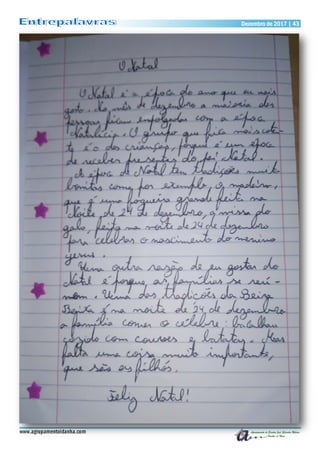 Entrepalavras
Dezembro de 2017 | 43
O Natal
O Natal é a época do ano que eu mais
gosto. No mês de dezembro a maioria das
pessoas ficam empolgadas com a época
Natalícia. O grupo que fica mais
é o das crianças, porque é um época
de receber presentes do pai Natal.
A época de Natal tem tradições muito
bonitas como, por exemplo, o madeiro,
que é uma fogueira grande feita na
noite de 24 de dezembro, a missa do
galo, feita na noite de 24 de dezembro
para celebrar o nascimento do menino
jesus.
Uma outra razão de eu gostar do
Natal é porque, as famílias se reú-
nem. Uma das tradições da Beira
Baixa é na noite de 24 de dezembro
a família comer o célebre: bacalhau
cozido com couves e batatas. Mas
falta uma coisa muito importante,
que são as filhós.
Feliz Natal!
www.agrupamentoidanha.com